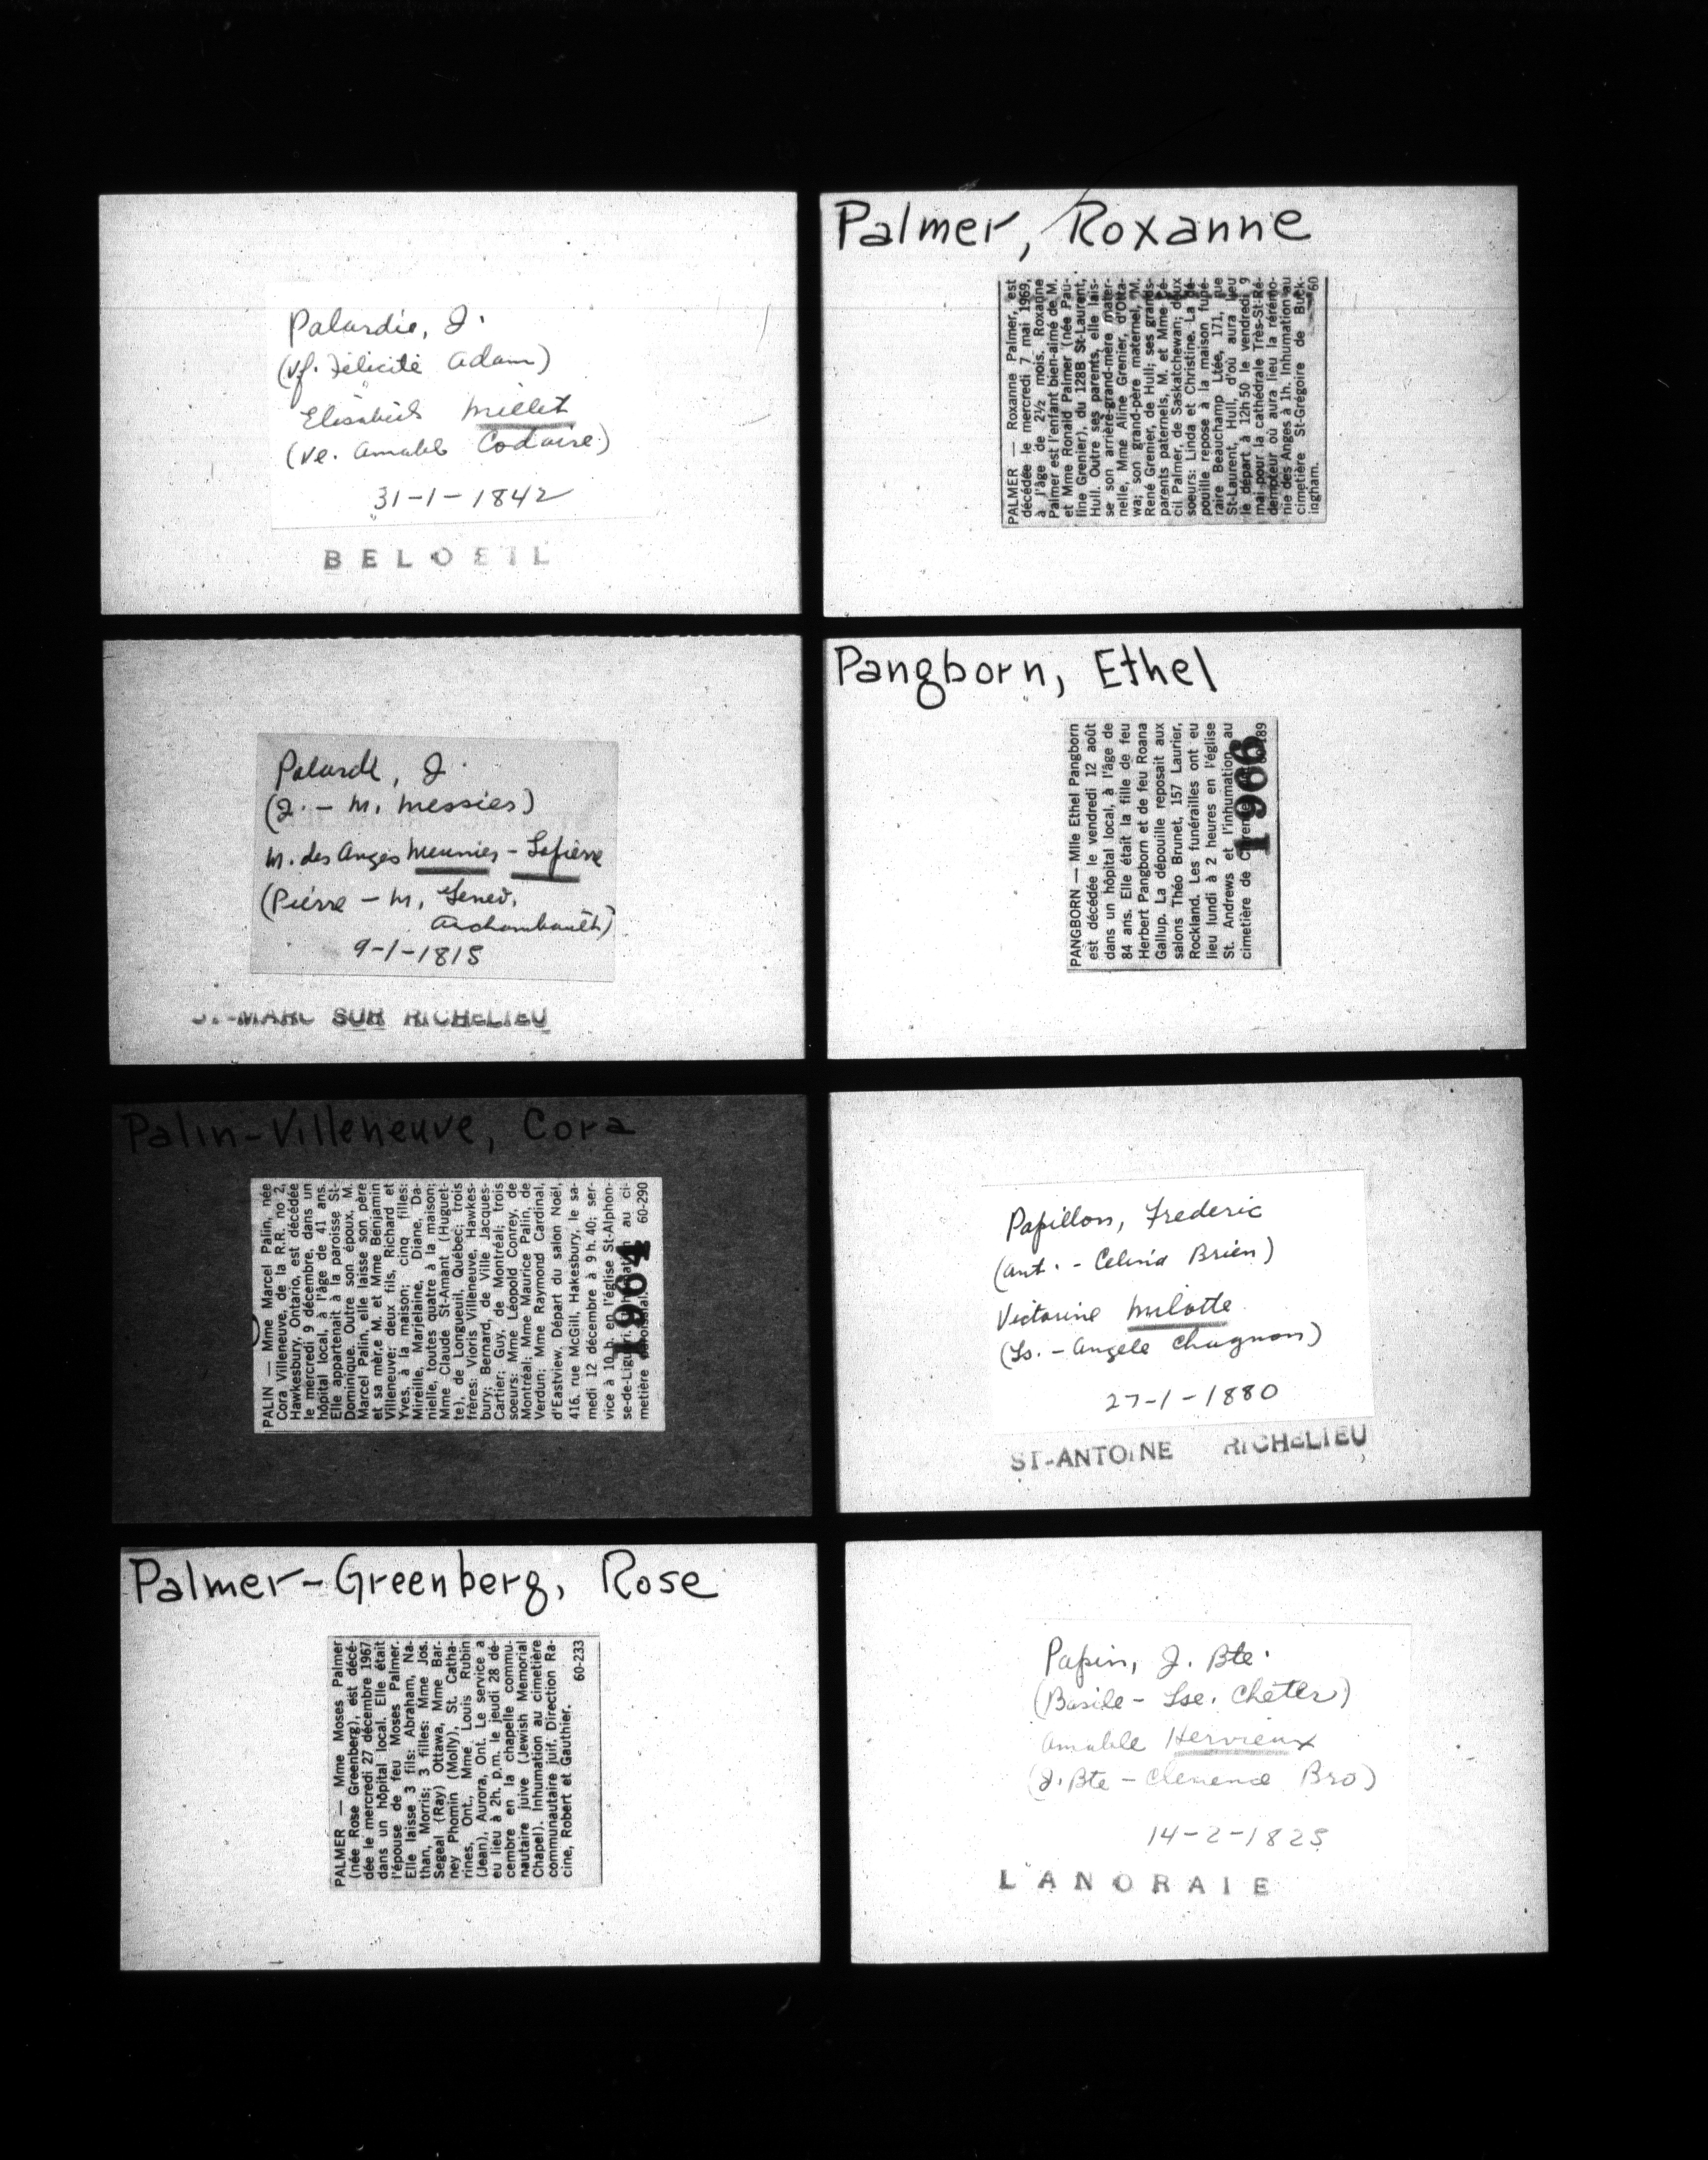 Palardie, J.
(Vf. Félicité Adam)
Elisabeth Millet
(Ve. Amable Codaire)
31-1-1842
BELOEIL
Palardé, J.
(J. - M. Messies)
M. des Anges Meunier - Lapierre
(Pierre - M. Genev.
Archambault)
9-1-1815
ST-MARC SUR RICHELIEU
Palin-Villeneuve, Cora
PALIN — Mme Marcel Palin, née
Cora Villeneuve, de la R.R. no 2,
Hawkesbury, Ontario, est décédée
le mercredi 9 décembre, dans un
hôpital local, à l'âge de 41 ans.
Elle appartenait à la paroisse St-
Dominique. Outre son époux, M.
Marcel Palin, elle laisse son père
et sa mèr.e M. et Mme Benjamin
Villeneuve; deux fils, Richard et
Yves, à la maison; cinq filles:
Mireille, Marjelaine, Diane, Da-
nielle, toutes quatre à la maison;
Mme Claude St-Amant (Huguet-
te), de Longueuil, Québec; trois
frères: Vioris Villeneuve, Hawkes-
bury; Bernard, de Ville Jacques-
Cartier; Guy, de Montréal; trois
soeurs: Mme Léopold Conrey, de
Montréal; Mme Maurice Palin, de
Verdun; Mme Raymond Cardinal,
d'Eastview. Départ du salon Noël,
416, rue McGill, Hakesbury, le sa-
medi 12 décembre à 9 h. 40; ser-
vice à 10 h. en l'église St-Alphon-
se-de-Liguori. Inhumation au ci-
metière paroissial. 60-290
1964
Palmer-Greenberg, Rose
PALMER — Mme Moses Palmer
(née Rose Greenberg), est décé-
dée le mercredi 27 décembre 1967
dans un hôpital local. Elle était
l'épouse de feu Moses Palmer.
Elle laisse 3 fils: Abraham, Na-
than, Morris; 3 filles: Mme Jos.
Segeal (Ray) Ottawa, Mme Bar-
ney Phomin (Molly), St. Catha-
rines, Ont., Mme Louis Rubin
(Jean), Aurora, Ont. Le service a
eu lieu à 2h. p.m. le jeudi 28 dé-
cembre en la chapelle commu-
nautaire juive (Jewish Memorial
Chapel). Inhumation au cimetière
communautaire juif. Direction Ra-
cine, Robert et Gauthier.
60-233
Palmer, Roxanne
PALMER — Roxanne Palmer, est
décédée le mercredi 7 mai 1969,
à l'âge de 2½ mois. Roxanne
Palmer est l'enfant bien-aimé de M.
et Mme Ronald Palmer (née Pau-
line Grenier), du 128B St-Laurent,
Hull. Outre ses parents, elle lais-
se son arrière-grand-mère mater-
nelle, Mme Aline Grenier, d'Otta-
wa; son grand-père maternel, M.
René Grenier, de Hull; ses grands-
parents paternels, M. et Mme Cé-
cil Palmer, de Saskatchewan; deux
soeurs: Linda et Christine. La dé-
pouille repose à la maison funé-
raire Beauchamp Ltée, 171, rue
St-Laurent, Hull, d'où aura lieu
le départ à 12h 50 le vendredi 9
mai pour la cathédrale Très-St-Ré-
dempteur où aura lieu la rérémo-
nie des Anges à 1h. Inhumation au
cimetière St-Grégoire de Buck-
ingham. 60
Pangborn, Ethel
PANGBORN — Mlle Ethel Pangborn
est décédée le vendredi 12 août
dans un hôpital local, à l'âge de
84 ans. Elle était la fille de feu
Herbert Pangborn et de feu Roana
Gallup. La dépouille reposait aux
salons Théo Brunet, 157 Laurier,
Rockland. Les funérailles ont eu
lieu lundi à 2 heures en l'église
St. Andrews et l'inhumation au
cimetière de
1966
Papillon, Frederic
(Ant. - Celina Brien)
Victorine Milotte
(Ls. - Angele Chagnon)
27-1-1880
ST-ANTOINE RICHELIEU
Papin, J. Bte.
(Basile - Lse. Cheter)
Amable Hervieux
(J. Bte - Clemence Bro)
14-2-1825
LANORAIE